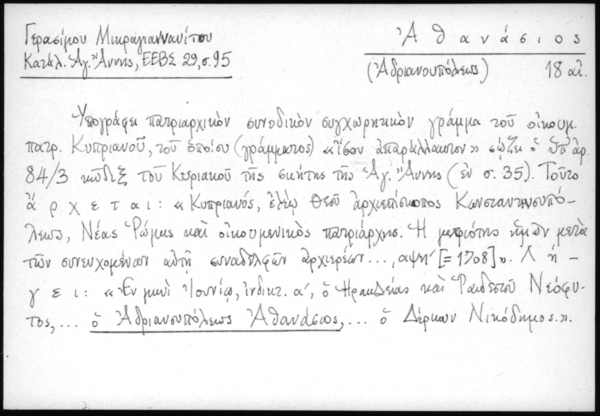 Γερασίμου Μικραγιαννανίτου
Κατάλ. Ἁγ. Ἄννης, ΕΕΒΣ 29, σ. 95
Ἀθανάσιος
(Ἀδριανουπόλεως) 18 αἰ.
Ὑπογράφει πατριαρχικὸν συνοδικὸν συγχωρητικὸν γράμμα τοῦ οἰκουμ.
πατρ. Κυπριανοῦ, τοῦ ὁποίου (γράμματος) «ἴσον ἀπαράλλακτον» σῴζει ὁ ὑπ' ἀρ.
84/3 κῶδιξ τοῦ Κυριακοῦ τῆς σκήτης τῆς Ἁγ. Ἄννης (ἐν σ. 35). Τοῦτο
ἄρχεται: «Κυπριανός, ἐλέῳ Θεοῦ ἀρχιεπίσκοπος Κωνσταντινουπό-
λεως, Νέας Ῥώμης καὶ οἰκουμενικὸς πατριάρχης. Ἡ μετριότης ἡμῶν μετὰ
τῶν συνευχομένων αὐτῇ συναδελφῶν ἀρχιερέων..., αψη' [= 1708]». Λή-
γει: «Ἐν μηνὶ Ἰουνίῳ, ἰνδικτ. α', ὁ Ἡρακλείας καὶ Ῥαιδεστοῦ Νεόφυ-
τος, ... ὁ Ἀδριανουπόλεως Ἀθανάσιος, ... ὁ Δέρκων Νικόδημος.».